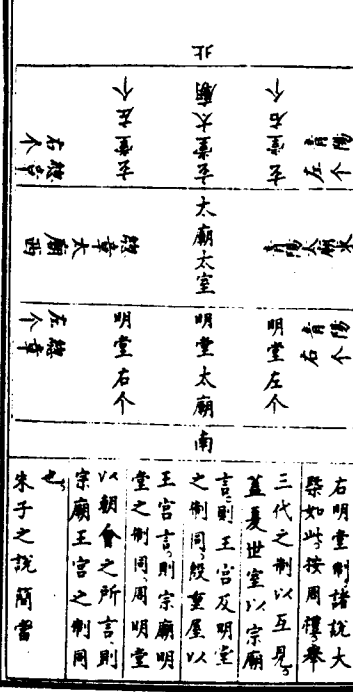 北
玄堂右个
玄堂太廟
玄堂左个
青陽左个
總章右个
東
青陽太廟
太廟太室
總章太廟
西
青陽右个
明堂左个
明堂太廟
明堂右个
總章左个
南
右明堂制諸說大
槩如此按周禮舉
三代之制以互見
蓋夏世室以宗廟
言則王宮及明堂
之制同殷重屋以
王宮言則宗廟明
堂之制同周明堂
以朝會之所言則
宗廟王宮之制同
也
朱子之說簡當